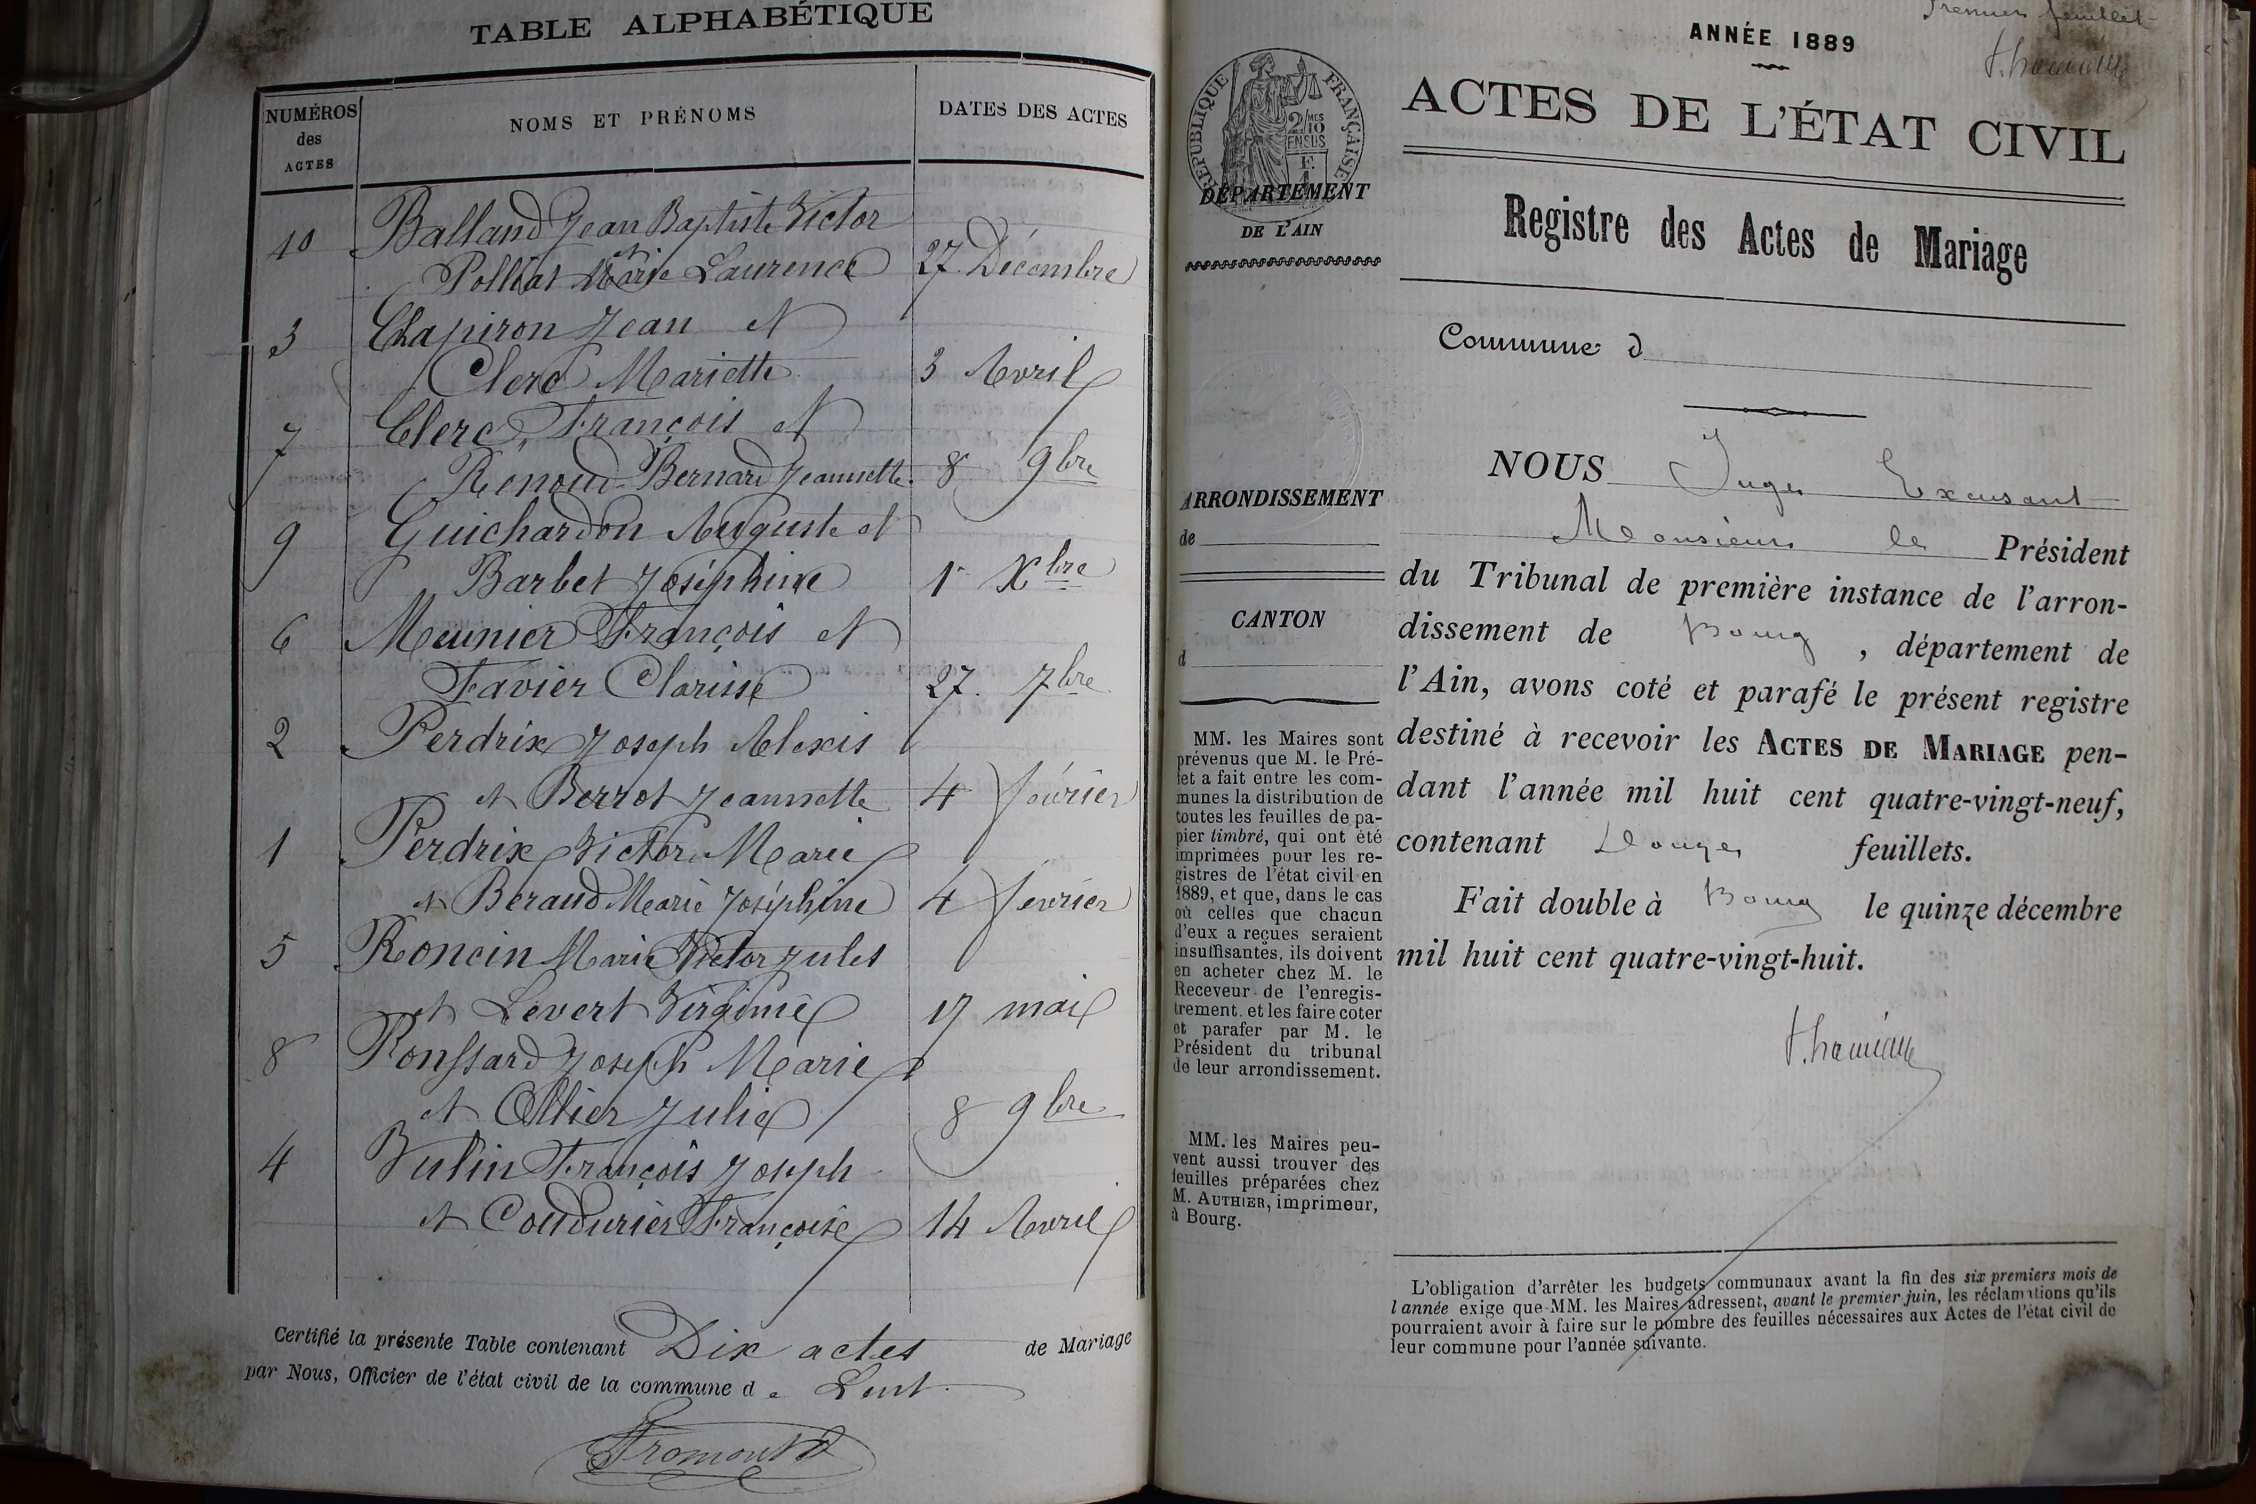 TABLE ALPHABÉTIQUE
NUMÉROS des ACTES
NOMS ET PRÉNOMS
DATES DES ACTES
10 Balland Jean Baptiste Victor
et
Polliat Marie Laurence 27 Décembre
3 Chapiron Jean et
Clerc Mariette 3 Avril
7 Clerc François et
Rénoud-Bernard Jeannette 8 9bre
9 Guichardon Auguste et
Barbet Joséphine 1r Xbre
6 Meunier François et
Favier Clarisse 27 7bre
2 Perdrix Joseph Alexis
et Berrot Jeannette 4 février
1 Perdrix Victor Marie
et Beraud Marie Joséphine 4 février
5 Roncin Marie Victor Jules
et Levert Virginie 17 mai
8 Ronssard Joseph Marie
et Ollier Julie 8 9bre
4 Vulin François Joseph
et Coudurier Françoise 14 Avril
Certifié la présente Table contenant Dix actes de Mariage
par Nous, Officier de l'état civil de la commune de Lent
Premier feuillet
ANNÉE 1889
ACTES DE L'ÉTAT CIVIL
Registre des Actes de Mariage
RÉPUBLIQUE FRANÇAISE
2/10MES
EN SUS
DÉPARTEMENT
DE L'AIN
Commune d
ARRONDISSEMENT
de
CANTON
d
MM. les Maires sont
prévenus que M. le Pré-
fet a fait entre les com-
munes la distribution de
toutes les feuilles de pa-
pier timbré, qui ont été
imprimées pour les re-
gistres de l'état civil en
1889, et que, dans le cas
où celles que chacun
d'eux a reçues seraient
insuffisantes, ils doivent
en acheter chez M. le
Receveur de l'enregis-
trement, et les faire coter
et parafer par M. le
Président du tribunal
de leur arrondissement.
MM. les Maires peu-
vent aussi trouver des
feuilles préparées chez
M. AUTHIER, imprimeur,
à Bourg.
NOUS Juge Excusant
Monsieur le Président
du Tribunal de première instance de l'arron-
dissement de Bourg, département de
l'Ain, avons coté et parafé le présent registre
destiné à recevoir les ACTES DE MARIAGE pen-
dant l'année mil huit cent quatre-vingt-neuf,
contenant Douze feuillets.
Fait double à Bourg le quinze décembre
mil huit cent quatre-vingt-huit.
L'obligation d'arrêter les budgets communaux avant la fin des six premiers mois de
l'année exige que MM. les Maires adressent, avant le premier juin, les réclamations qu'ils
pourraient avoir à faire sur le nombre des feuilles nécessaires aux Actes de l'état civil de
leur commune pour l'année suivante.